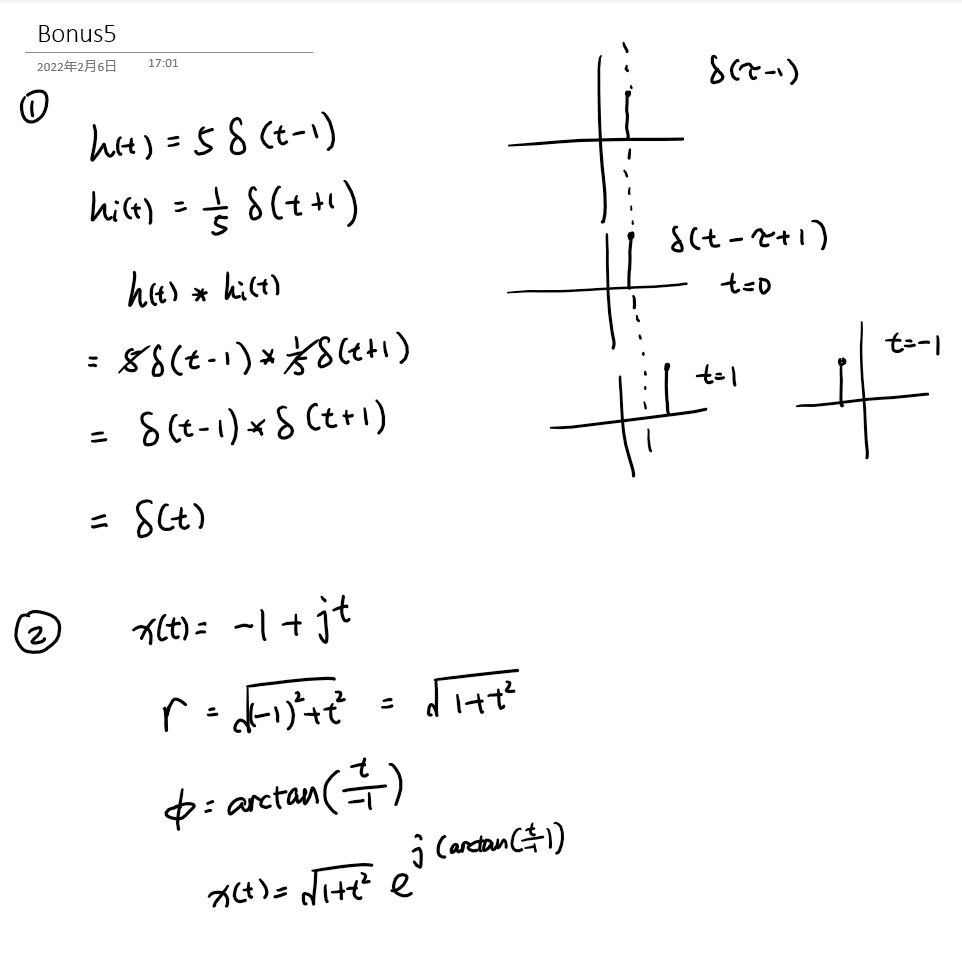 Bonus5
2022年2月6日 17:01
①
h(t) = 5 δ(t-1)
hi(t) = 1/5 δ(t+1)
h(t) * hi(t)
= 5δ(t-1) * 1/5 δ(t+1)
= δ(t-1) * δ(t+1)
= δ(t)
δ(τ-1)
δ(t-τ+1)
t=0
t=1
1
t=-1
②
x(t) = -1 + jt
r = √((-1)²+t²) = √(1+t²)
ϕ = arctan(t/-1)
x(t) = √(1+t²) e^j(arctan(t/-1))